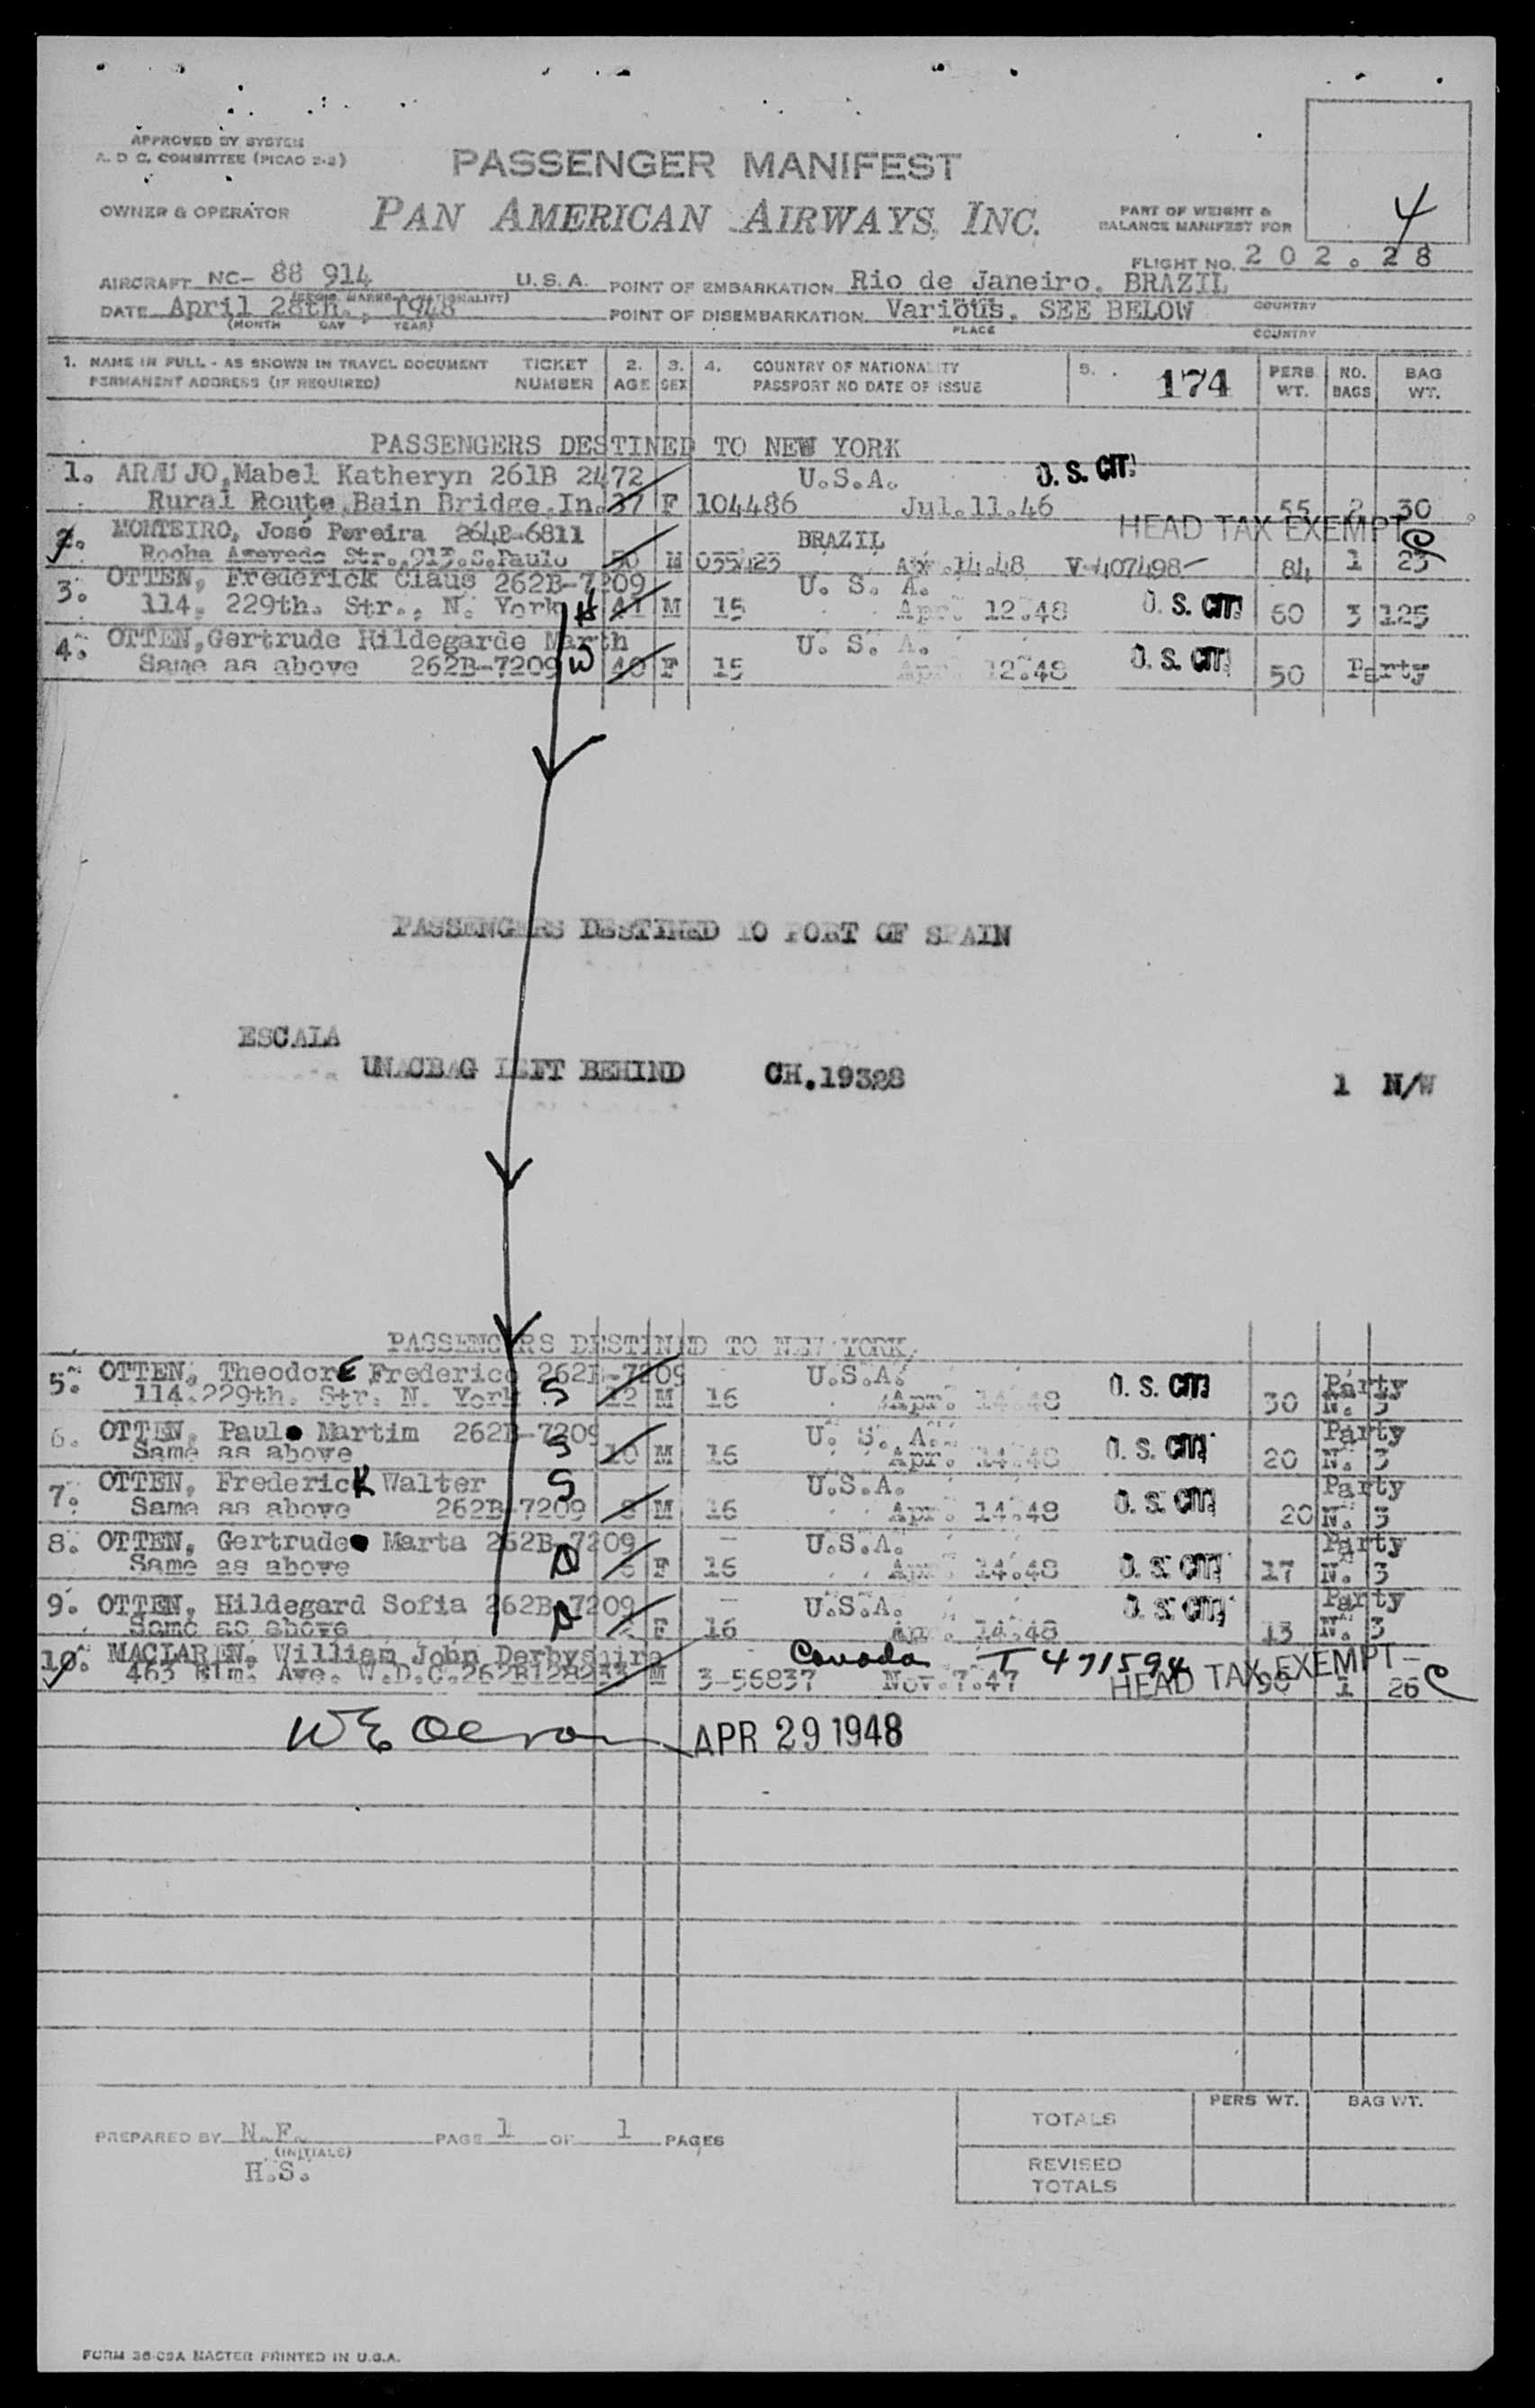 APPROVED BY SYSTEM
A. D C. COMMITTEE (PICAO 2-2)
PASSENGER MANIFEST
OWNER & OPERATOR
PAN AMERICAN AIRWAYS, INC.
PART OF WEIGHT &
BALANCE MANIFEST FOR
4
FLIGHT NO. 202.28
AIRCRAFT NC- 88 914 U.S.A. POINT OF EMBARKATION Rio de Janeiro, BRAZIL
DATE April 28th., 1948 POINT OF DISEMBARKATION Various, SEE BELOW COUNTRY
(MONTH DAY YEAR) PLACE COUNTRY
1. NAME IN FULL - AS SHOWN IN TRAVEL DOCUMENT TICKET 2. 3. 4. COUNTRY OF NATIONALITY 5. 174 PERS NO. BAG
PERMANENT ADDRESS (IF REQUIRED) NUMBER AGE SEX PASSPORT NO DATE OF ISSUE WT. BAGS WT.
PASSENGERS DESTINED TO NEW YORK
1. ARAUJO,Mabel Katheryn 261B 2472 U.S.A. U.S. CIT.
Rural Route,Bain Bridge,In. 37 F 104486 Jul.11.46 55 2 30
2. MONTEIRO, José Pereira 264B-6811 BRAZIL HEAD TAX EXEMPT
Rocha Azevedo Str.,913.S.Paulo 50 M 035423 Apr.14.48 V-407498- 84 1 23
3. OTTEN, Frederick Claus 262B-7209 U. S. A.
114, 229th. Str., N. York H 41 M 15 Apr. 12.48 U.S. CIT. 60 3 125
4. OTTEN,Gertrude Hildegarde Marth U. S. A.
Same as above 262B-7209 W 40 F 15 Apr. 12.48 U.S. CIT. 50 Party
PASSENGERS DESTINED TO PORT OF SPAIN
ESCALA
UNACBAG LEFT BEHIND CH.19328 1 N/W
PASSENGERS DESTINED TO NEW YORK
5. OTTEN, TheodorE Frederico 262B-7209 U.S.A. U.S. CIT. Party
114.229th. Str. N. York S 12 M 16 Apr. 14.48 30 N. 3
6. OTTEN, Paul Martim 262B-7209 U. S. A. U.S. CIT. Party
Same as above S 10 M 16 Apr. 14.48 20 N. 3
7. OTTEN, FredericK Walter S U.S.A. U.S. CIT. Party
Same as above 262B-7209 8 M 16 Apr. 14.48 20 N. 3
8. OTTEN, Gertrude Marta 262B-7209 U.S.A. Party
Same as above D F 16 Apr. 14.48 U.S. CIT. 17 N. 3
9. OTTEN, Hildegard Sofia 262B-7209 U.S.A. U.S. CIT. Party
Same as above D F 16 Apr. 14.48 13 N. 3
10. MACLAREN, William John Derbyshire Canada T 471594 HEAD TAX EXEMPT
463 Elm. Ave. W.D.C. M 3-56837 Nov.7.47 1 26
APR 29 1948
PERS WT. BAG WT.
TOTALS
PREPARED BY N.F. PAGE 1 OF 1 PAGES
(INITIALS)
H.S.
REVISED
TOTALS
FORM 36-09A MASTER PRINTED IN U.S.A.